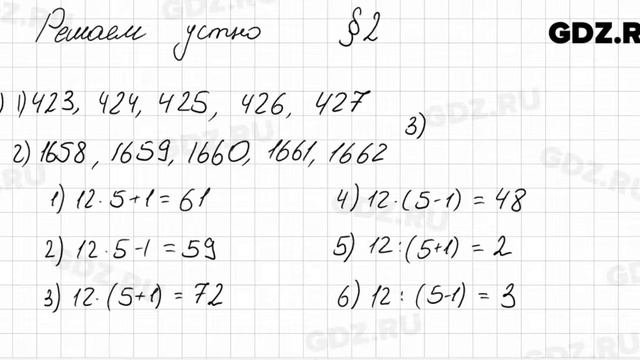 Решаем устно §2
GDZ.RU
) 1) 423, 424, 425, 426, 427
3)
2) 1658, 1659, 1660, 1661, 1662
1) 12·5+1=61
4) 12·(5-1)=48
2) 12·5-1=59
5) 12:(5+1)=2
3) 12·(5+1)=72
6) 12:(5-1)=3